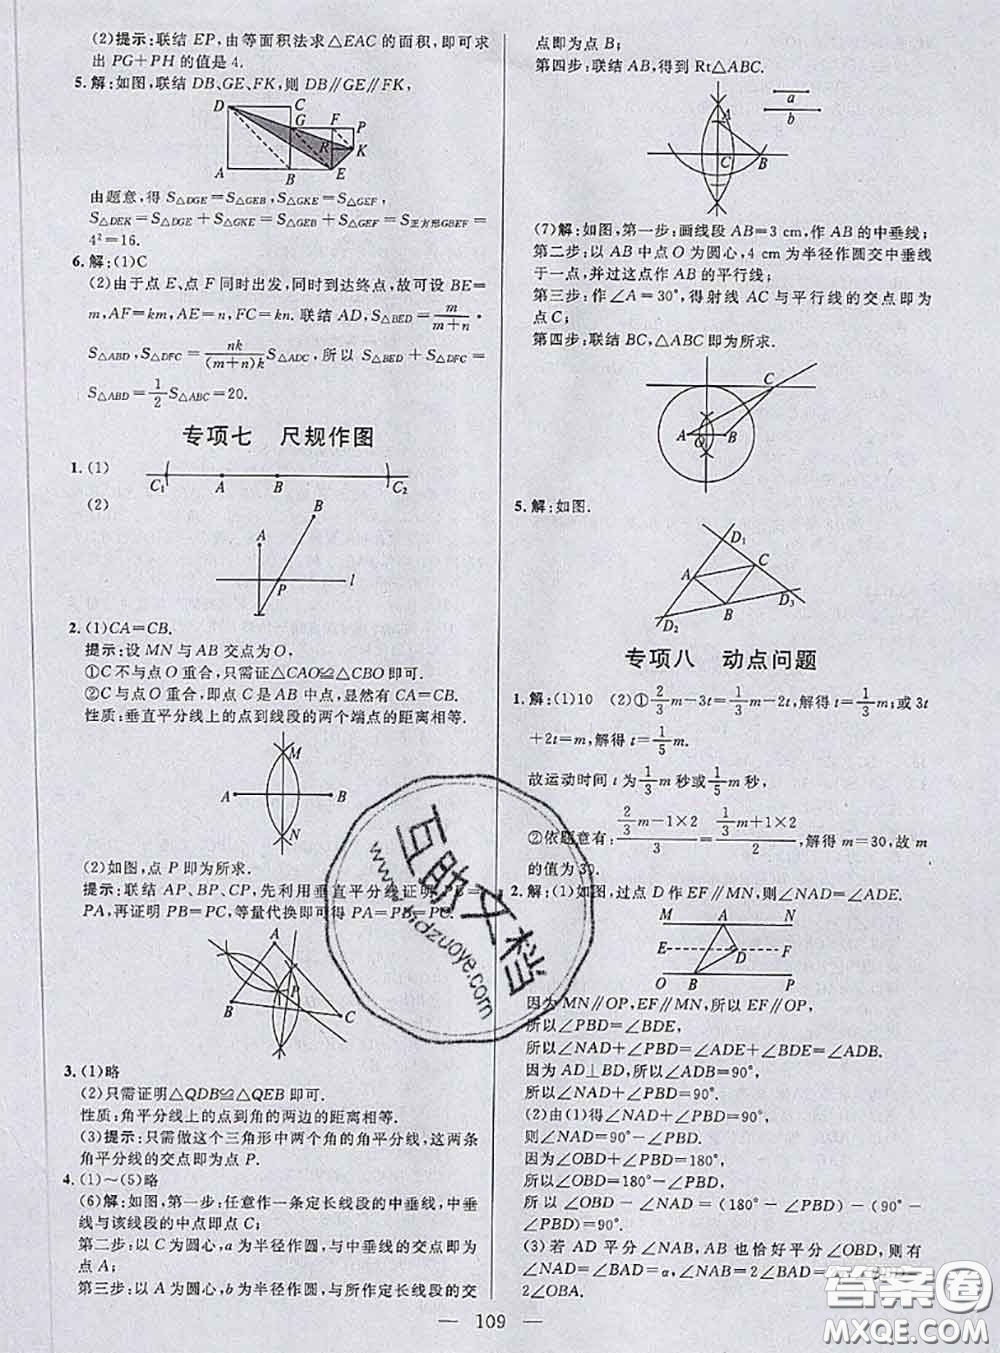 (2)提示:联结 EP,由等面积法求△EAC 的面积,即可求
出 PG+PH 的值是 4.
5.解:如图,联结 DB、GE、FK,则 DB∥GE∥FK,
D
C
G
F
P
R
K
A
B
E
由题意,得 S△DGE=S△GEB,S△GKE=S△GEF,
S△DEK=S△DGE+S△GKE=S△GEB+S△GEF=S正方形GBEF=
4²=16.
6.解:(1)C
(2)由于点 E、点 F 同时出发,同时到达终点,故可设 BE=
m,AF=km,AE=n,FC=kn. 联结 AD,S△BED=m/(m+n)·
S△ABD,S△DFC=nk/((m+n)k)S△ADC,所以 S△BED+S△DFC=
S△ABD=1/2S△ABC=20.
专项七 尺规作图
1.(1)
C₁ A B C₂
(2)
B
A
P
l
2.(1)CA=CB.
提示:设 MN 与 AB 交点为 O,
①C 不与点 O 重合,只需证△CAO≌△CBO 即可.
②C 与点 O 重合,即点 C 是 AB 中点,显然有 CA=CB.
性质:垂直平分线上的点到线段的两个端点的距离相等.
M
A B
N
(2)如图,点 P 即为所求.
提示:联结 AP、BP、CP,先利用垂直平分线证明 PB=
PA,再证明 PB=PC,等量代换即可得 PA=PB=PC.
A
P
B
C
3.(1)略
(2)只需证明△QDB≌△QEB 即可.
性质:角平分线上的点到角的两边的距离相等.
(3)提示:只需做这个三角形中两个角的角平分线,这两条
角平分线的交点即为点 P.
4.(1)~(5)略
(6)解:如图,第一步:任意作一条定长线段的中垂线,中垂
线与该线段的中点即点 C;
第二步:以 C 为圆心,a 为半径作圆,与中垂线的交点即为
点 A;
第三步:以 A 为圆心,b 为半径作圆,与所作定长线段的交
点即为点 B;
第四步:联结 AB,得到 Rt△ABC.
A
a
b
C B
(7)解:如图,第一步:画线段 AB=3 cm,作 AB 的中垂线;
第二步:以 AB 中点 O 为圆心,4 cm 为半径作圆交中垂线
于一点,并过这点作 AB 的平行线;
第三步:作∠A=30°,得射线 AC 与平行线的交点即为
点 C;
第四步:联结 BC,△ABC 即为所求.
C
A O B
5.解:如图.
D₁
C
A
B
D₃
D₂
专项八 动点问题
1.解:(1)10 (2)①2/3m-3t=1/3m-2t,解得 t=1/3m;或 3t
+2t=m,解得 t=1/5m.
故运动时间 t 为1/3m 秒或1/5m 秒,
②依题意有:(2/3m-1×2)/3=(1/3m+1×2)/2,解得 m=30,故 m
的值为 30.
2.解:(1)如图,过点 D 作 EF∥MN,则∠NAD=∠ADE.
M A N
E D F
O B P
因为 MN∥OP,EF∥MN,所以 EF∥OP,
所以∠PBD=∠BDE,
所以∠NAD+∠PBD=∠ADE+∠BDE=∠ADB.
因为 AD⊥BD,所以∠ADB=90°,
所以∠NAD+∠PBD=90°.
(2)由(1)得∠NAD+∠PBD=90°,
则∠NAD=90°-∠PBD.
因为∠OBD+∠PBD=180°,
所以∠OBD=180°-∠PBD,
所以∠OBD-∠NAD=(180°-∠PBD)-(90°-
∠PBD)=90°.
(3)若 AD 平分∠NAB,AB 也恰好平分∠OBD,则有
∠NAD=∠BAD=α,∠NAB=2∠BAD=
2∠OBA.
— 109 —
互助文档
www.hdzuoye.com
答案圈
MXQE.COM